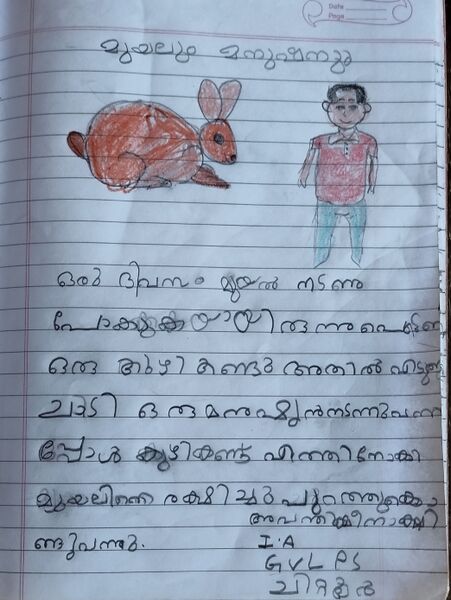 Date
Page
മുയലും മനുഷനും
ഒരു ദിവസം മുയൽ നടന്നു
പോകുകയായിരുന്നു പെട്ടന്ന്
ഒരു കുഴി കണ്ടു അതിൽ വീണു
ചാടി ഒരു മനുഷ്യൻ നടന്നു വന്ന
പ്പോൾ കുഴികണ്ടു എത്തി നോക്കി
മുയലിനെ രക്ഷിച്ചു പുറത്തുകൊ
അവന്തിമീനാക്ഷി
ണ്ടുവന്നു.
I.A
GVLPS
ചിറ്റൂർ